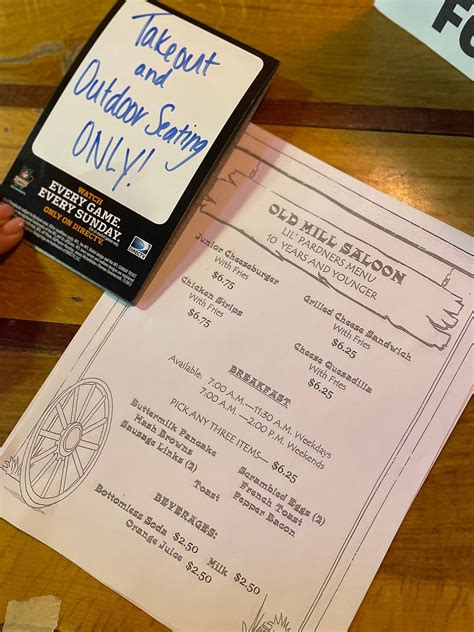 Takeout
and
Outdoor Seating
ONLY!
WATCH
EVERY GAME.
EVERY SUNDAY.
ONLY ON DIRECTV.
DIRECTV
FO
OLD MILL SALOON
LIL' PARDNERS MENU
10 YEARS AND YOUNGER
Junior Cheeseburger
With Fries
$6.75
Chicken Strips
With Fries
$6.75
Grilled Cheese Sandwich
With Fries
$6.25
Cheese Quesadilla
With Fries
$6.25
BREAKFAST
Available: 7:00 A.M.—11:30 A.M. Weekdays
7:00 A.M.—2:00 P.M. Weekends
PICK ANY THREE ITEMS— $6.25
Buttermilk Pancake
Hash Browns
Sausage Links (2)
Toast
Scrambled Eggs (2)
French Toast
Pepper Bacon
BEVERAGES:
Bottomless Soda $2.50
Orange Juice $2.50
Milk $2.50